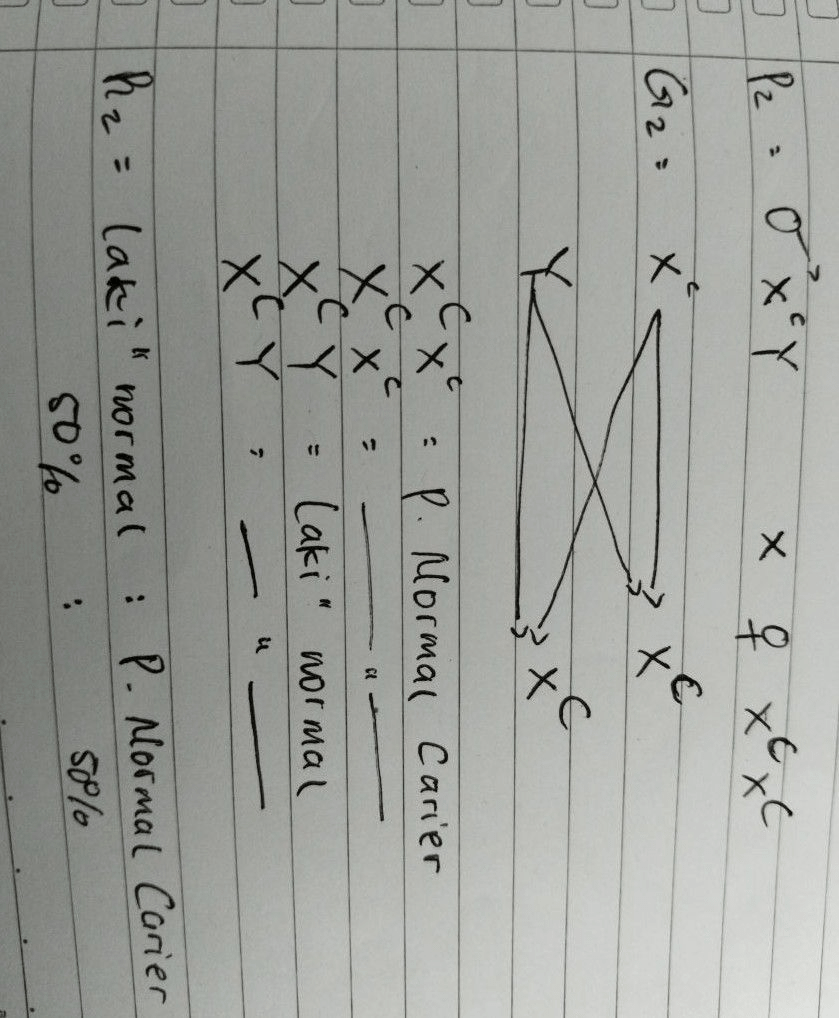 P2 = ♂ XᶜY x ♀ Xᶜ Xᶜ
G2 = Xᶜ Xᶜ
Y Xᶜ
Xᶜ Xᶜ = P. Normal Carier
Xᶜ Xᶜ = —— " ——
Xᶜ Y = Laki" normal
Xᶜ Y = —— " ——
R2 = Laki" normal : P. Normal Carier
50% : 50%